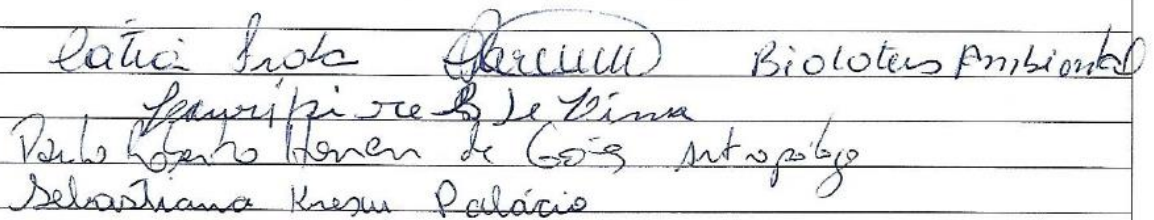 Cátia Frota Biolotus Ambiental
de Lima
Paulo Roberto Homem de Góes Antropólogo
Sebastiana Kresu Palácio